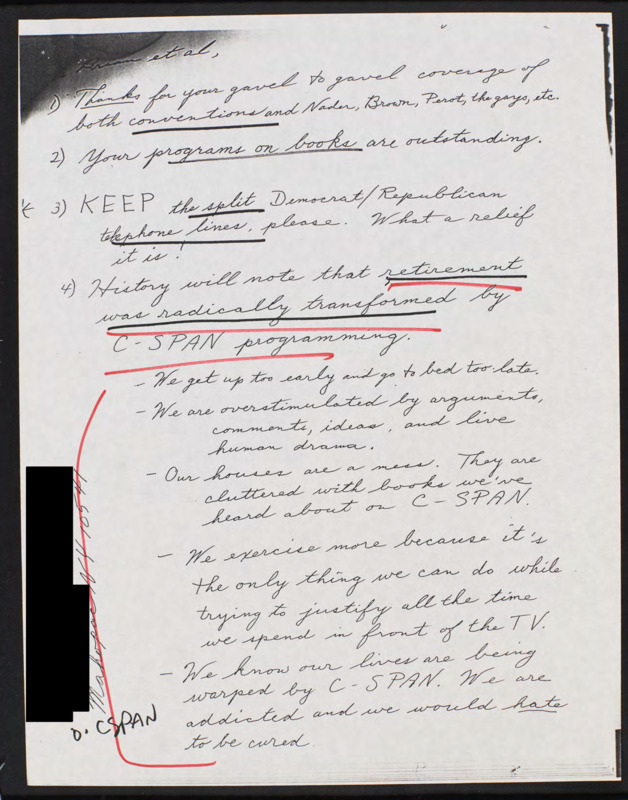 et al,
1) Thanks for your gavel to gavel coverage of
both conventions and Nader, Brown, Perot, the gays, etc.
2) Your programs on books are outstanding.
3) KEEP the split Democrat/Republican
telephone lines, please. What a relief
it is!
4) History will note that retirement
was radically transformed by
C-SPAN programming.
- We get up too early and go to bed too late.
- We are overstimulated by arguments,
comments, ideas, and live
human drama.
- Our houses are a mess. They are
cluttered with books we've
heard about on C-SPAN.
- We exercise more because it's
the only thing we can do while
trying to justify all the time
we spend in front of the TV.
- We know our lives are being
warped by C-SPAN. We are
addicted and we would hate
to be cured.
Mahopac NY 10541
CSPAN